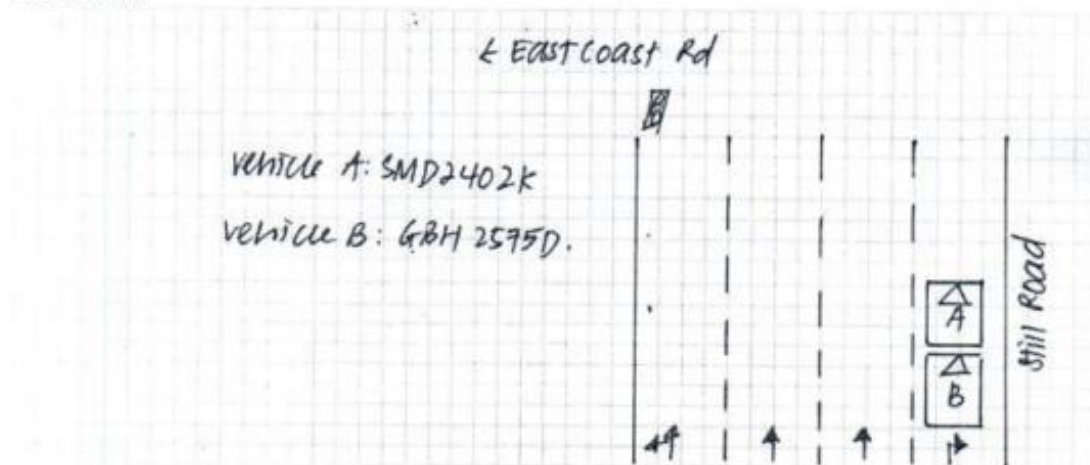 < East Coast Rd
Vehicle A: SMD2402K
Vehicle B: GBH 2575D.
Still Road
A
B